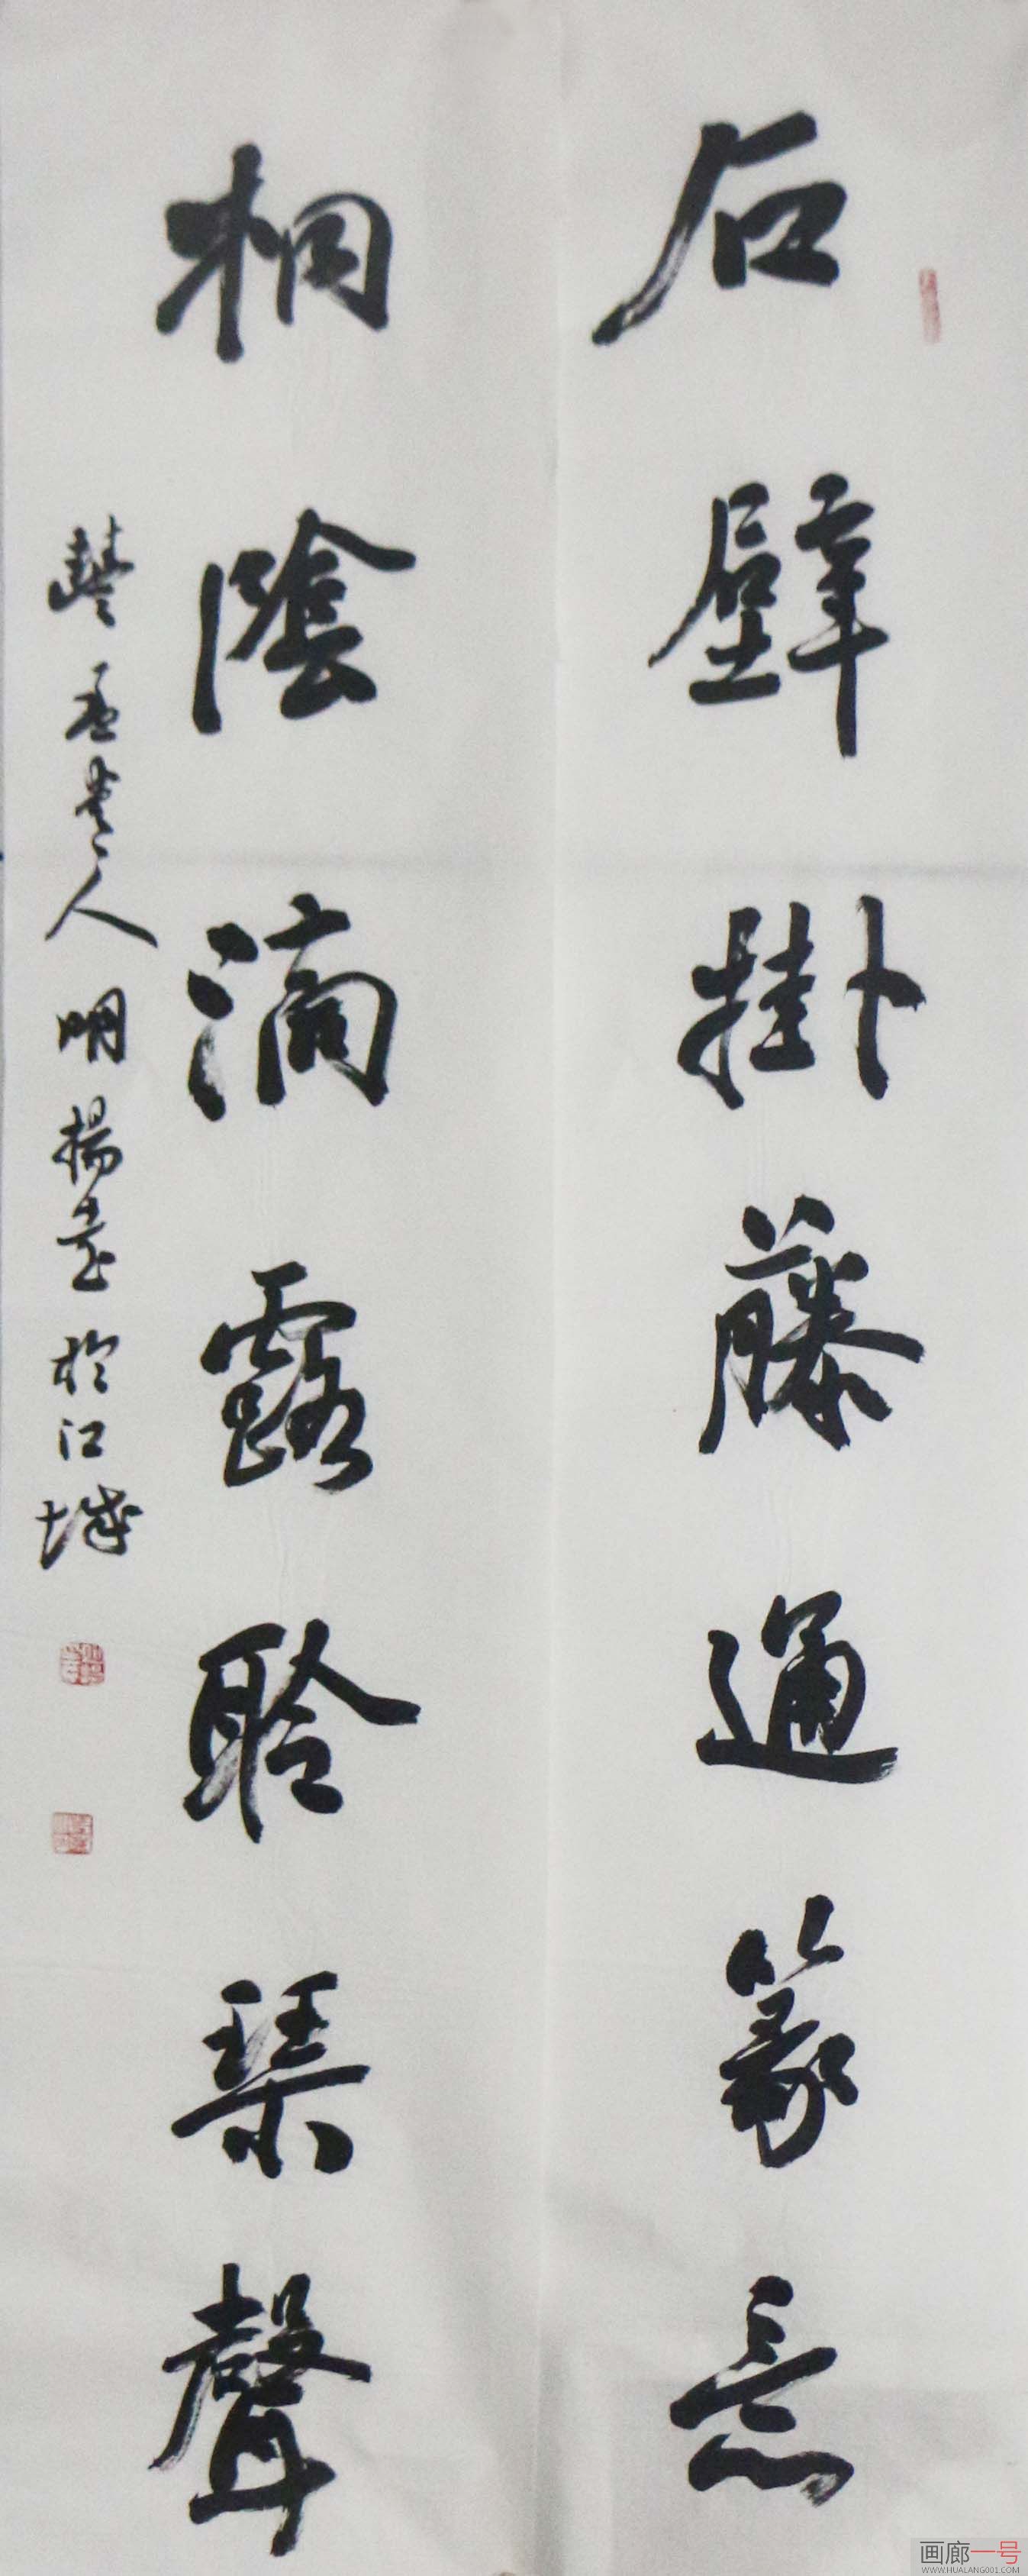 石壁掛藤通篆意
桐陰滴露聆琴聲
人明揚書於江城
画廊一号
WWW.HUALANG001.COM